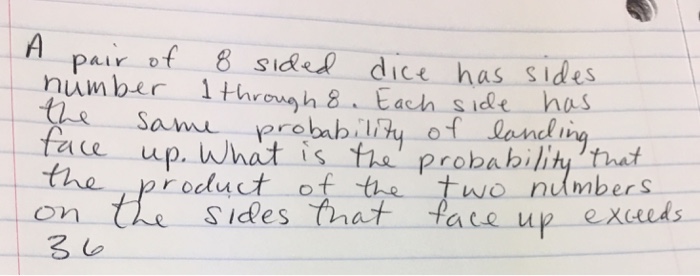 A pair of 8 sided dice has sides
number 1 through 8. Each side has
the same probability of landing
face up. What is the probability that
the product of the two numbers
on the sides that face up exceeds
36